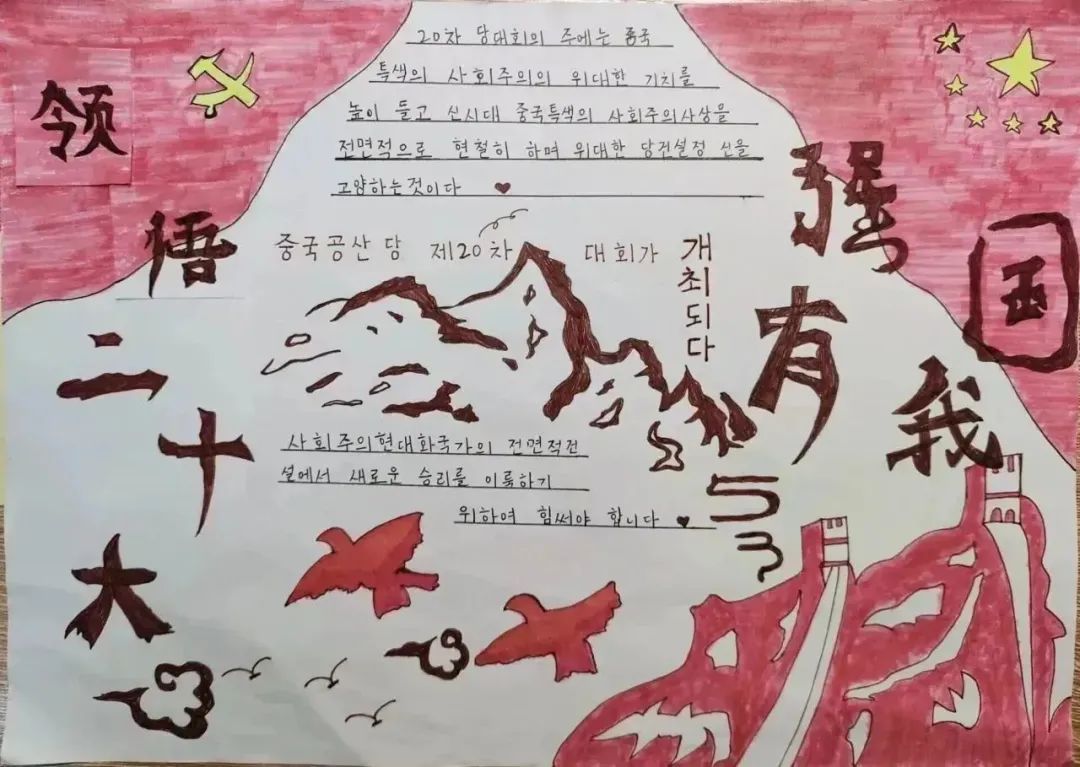 20차 당대회의 주에는 중국
특색의 사회주의의 위대한 기치를
높이 들고 신시대 중국특색의 사회주의사상을
전면적으로 현철히 하며 위대한 당건설정 신을
고양하는것이다
领悟二十大
强国有我
중국공산당 제20차 대회가
개최되다
사회주의현대화국가의 전면적건
설에서 새로운 승리를 이룩하기
위하여 힘써야 합니다